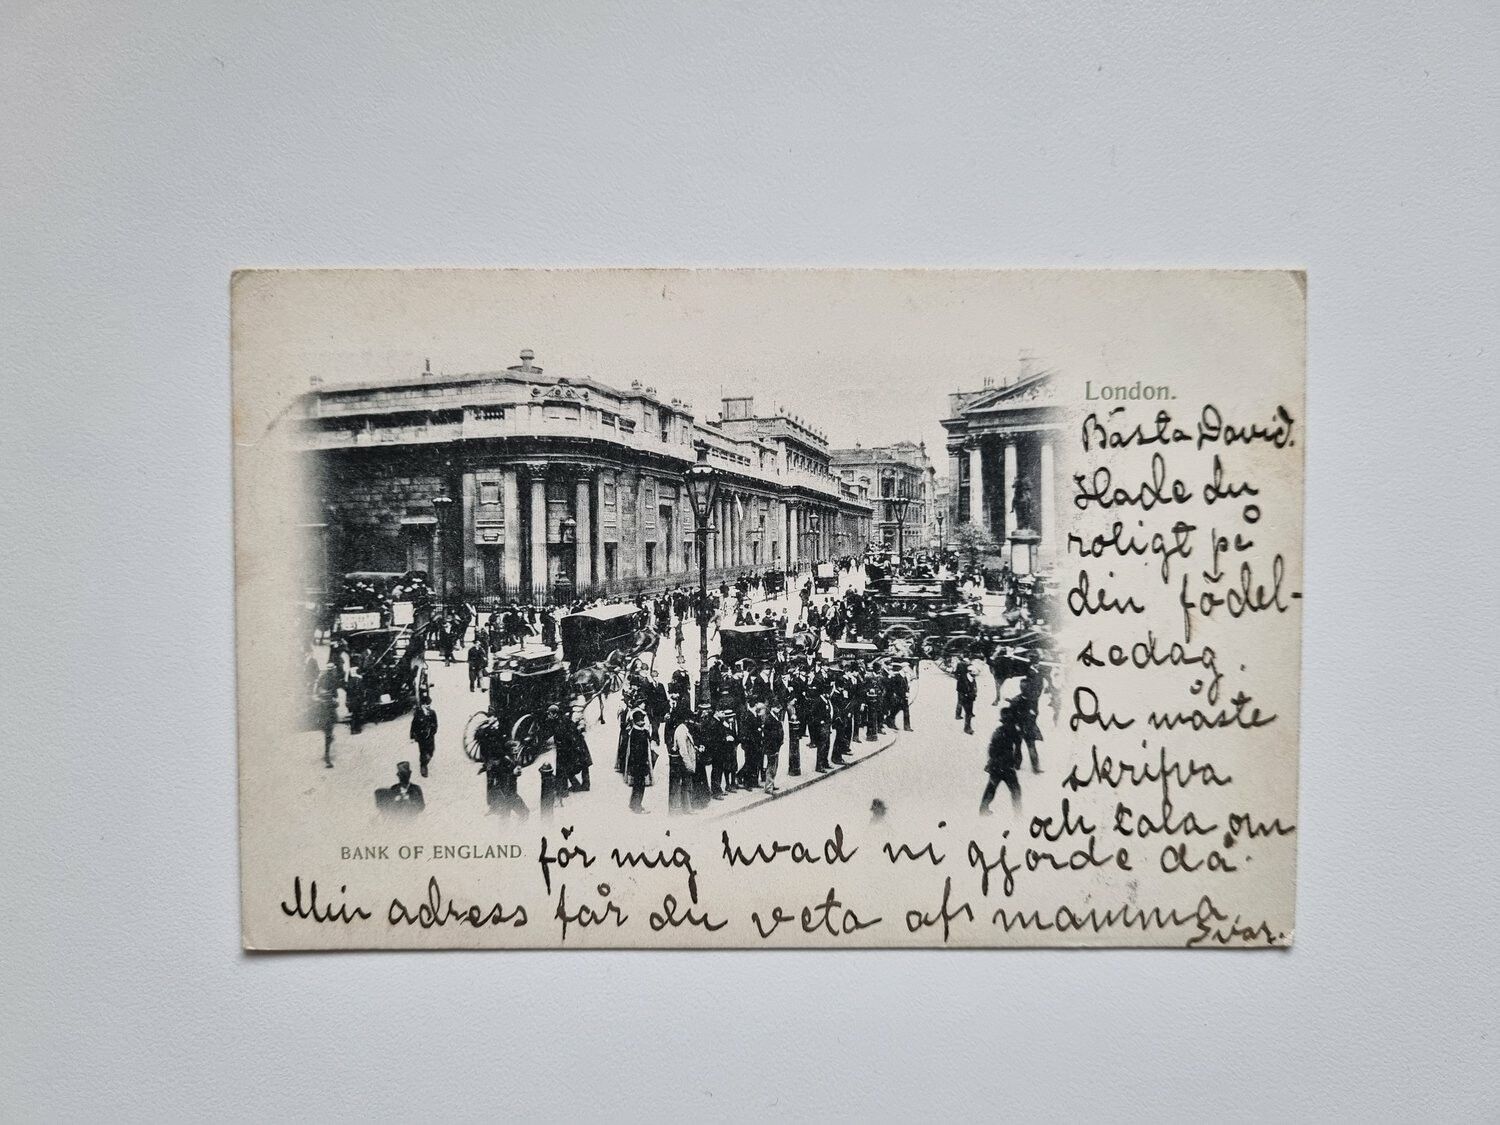 London.
Bästa David.
Hade du
roligt på
din födel-
sedag.
Du måste
skrifva
och tala om
BANK OF ENGLAND
för mig hvad ni gjorde då.
Min adress får du veta af mamma
Ivar.